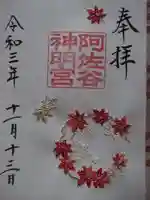 奉拝
阿佐谷
神明宮
令和三年
十一月十三日